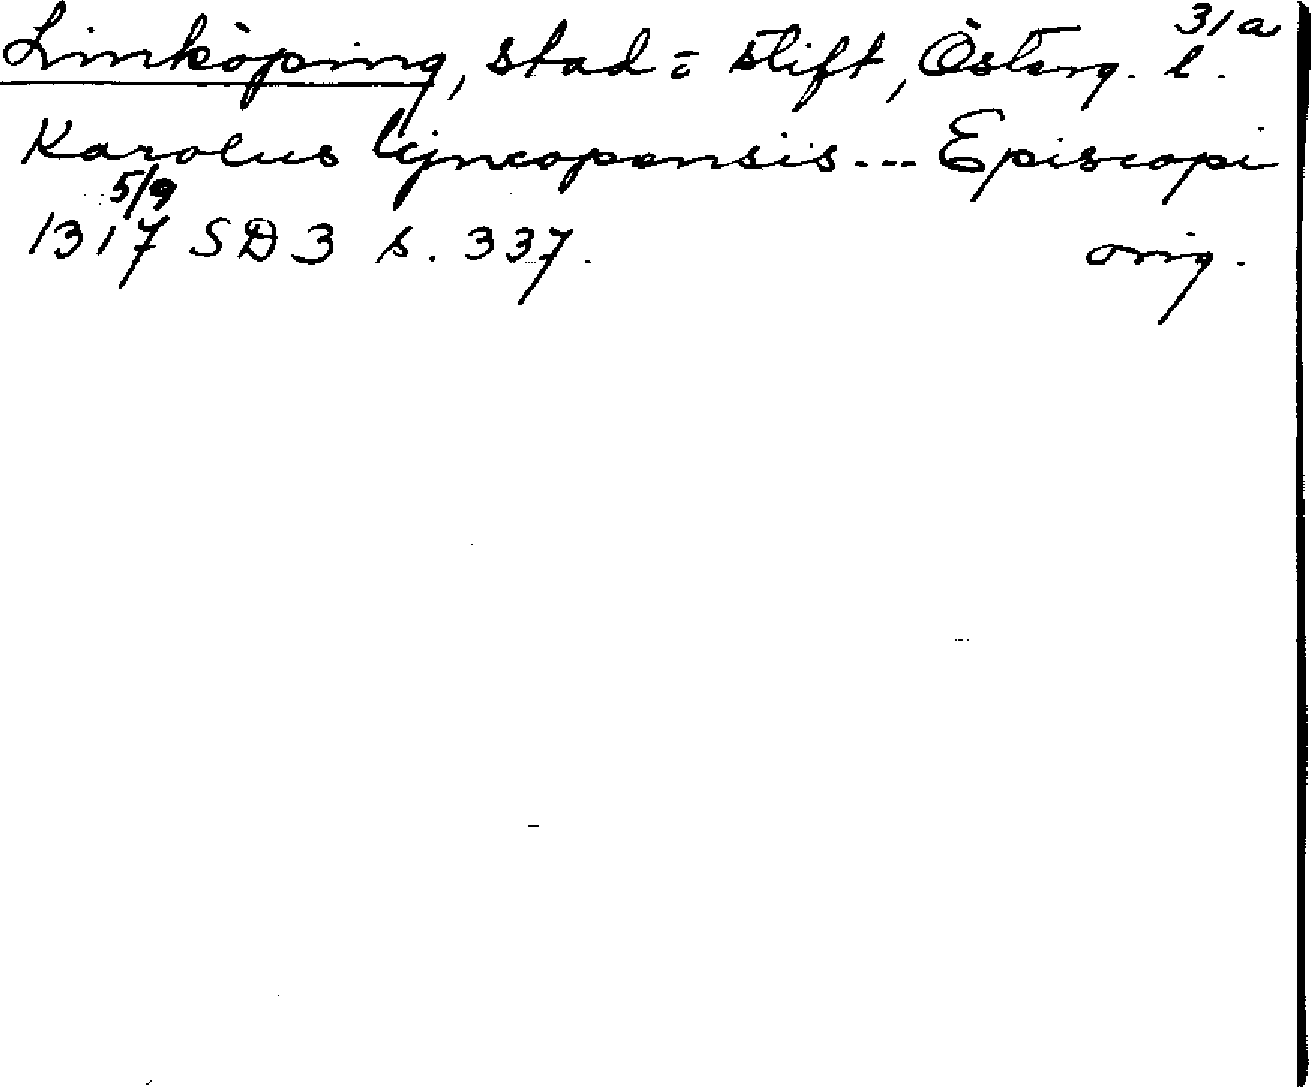 31a
Linköping, stad o stift, Österg. l.
Karolus lyncopensis... Episcopi
5/9
1317 SD 3 s. 337. orig.